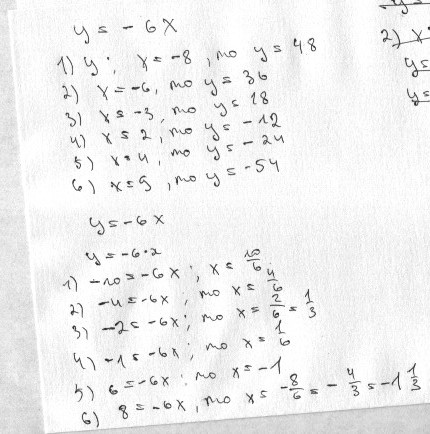 y = - 6x
1) y; x = -8, то y = 48
2) x = -6, то y = 36
3) x = -3, то y = 18
4) x = 2, то y = -12
5) x = 4, то y = - 24
6) x = 9, то y = -54
y = -6x
y = -6·x
1) -10 = -6x; x = 10/6
2) -4 = -6x; то x = 4/6
3) -2 = -6x; то x = 2/6 = 1/3
4) -1 = -6x; то x = 1/6
5) 6 = -6x; то x = -1
6) 8 = -6x, то x = -8/6 = - 4/3 = -1 1/3
2) x
y =
y =